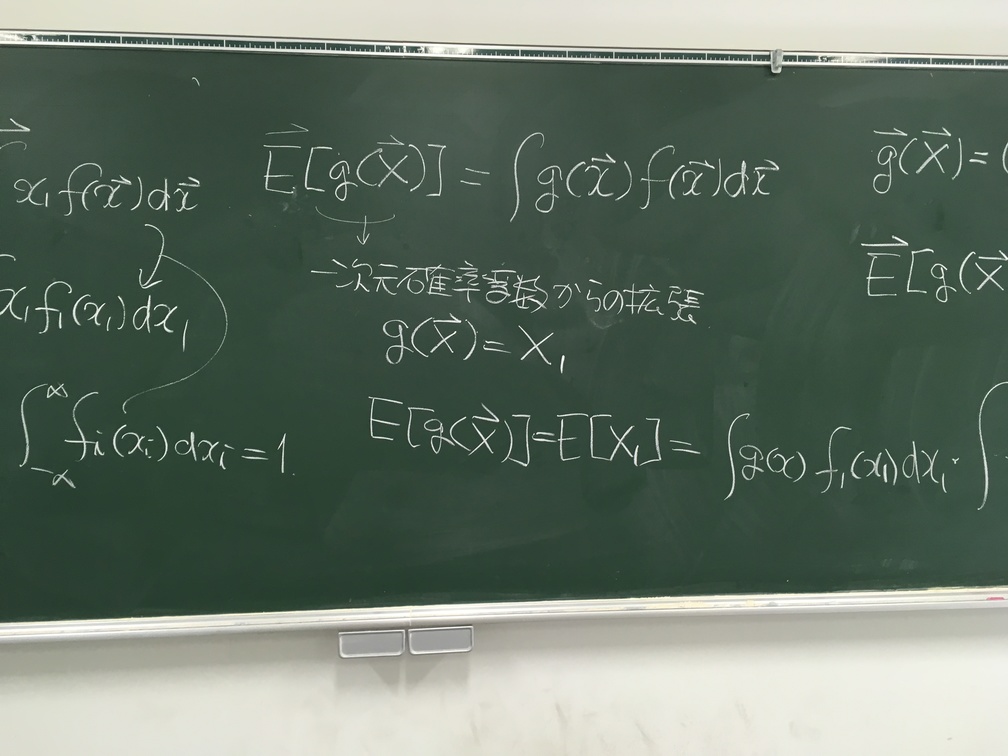 x₁f(x⃗)dx⃗
x₁f₁(x₁)dx₁
∫_{-∞}^{∞} fᵢ(xᵢ)dxᵢ=1.
E⃗[g(X⃗)]=∫g(x⃗)f(x⃗)dx⃗
一次元確率変数からの拡張
g(X⃗)=X₁
E[g(X⃗)]=E[X₁]=∫g(x)f₁(x₁)dx₁·∫
g⃗(X⃗)=(
E⃗[g(X⃗